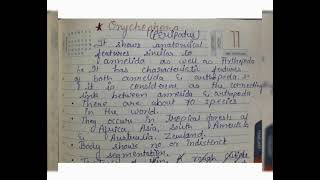 * Onychophora
(Peripatus)
It shows anatomical
features similar to
annelida as well as Arthropoda
It has characteristic features
of both annelida & arthropoda
& it is considered as the connecting
link between annelida & arthropoda
There are about 70 species
in the world.
They occurs in tropical forests of
Africa, Asia, South America
& Australia, Zewland.
Body shows no or indistinct
segmentation.
rough
11